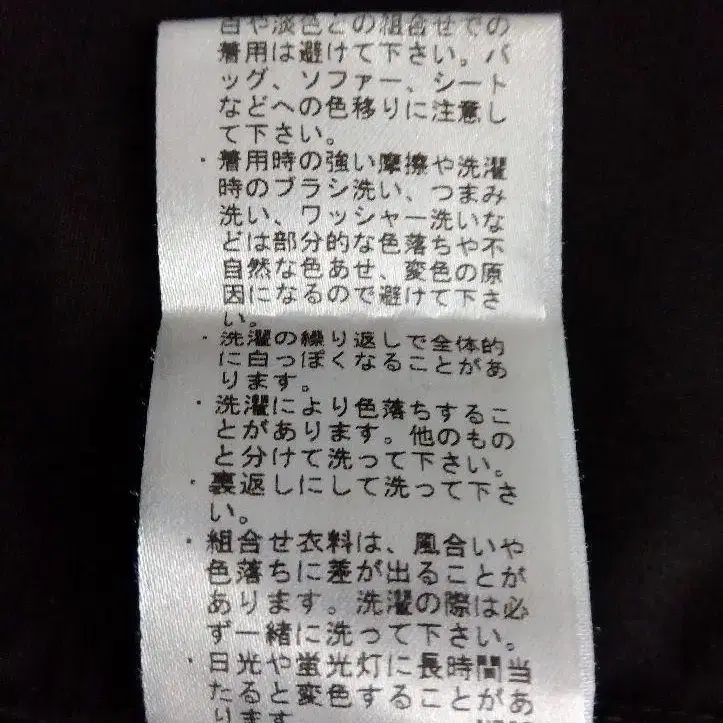 白や淡色との組合せでの
着用は避けて下さい。バ
ッグ、ソファー、シート
などへの色移りに注意し
て下さい。
・着用時の強い摩擦や洗濯
時のブラシ洗い、つまみ
洗い、ワッシャー洗いな
どは部分的な色落ちや不
自然な色あせ、変色の原
因になるので避けて下さ
い。
・洗濯の繰り返しで全体的
に白っぽくなることがあ
ります。
・洗濯により色落ちするこ
とがあります。他のもの
と分けて洗って下さい。
・裏返しにして洗って下さ
い。
・組合せ衣料は、風合いや
色落ちに差が出ることが
あります。洗濯の際は必
ず一緒に洗って下さい。
・日光や蛍光灯に長時間当
たると変色することがあ
ります